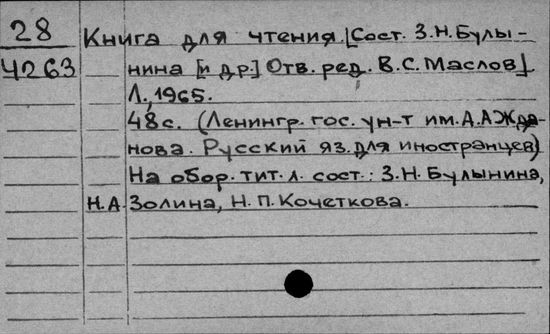 28 Книга для чтения [Сост. З.Н. Булы-
4263 нина [и др.] Отв. ред. В.С. Маслов]
Л., 1965.
48 с. (Ленингр. гос. ун-т им. А.А Жда-
нова. Русский яз. для иностранцев)
На обор. тит. л. сост.: З.Н. Булынина,
Н.А Золина, Н.П. Кочеткова.